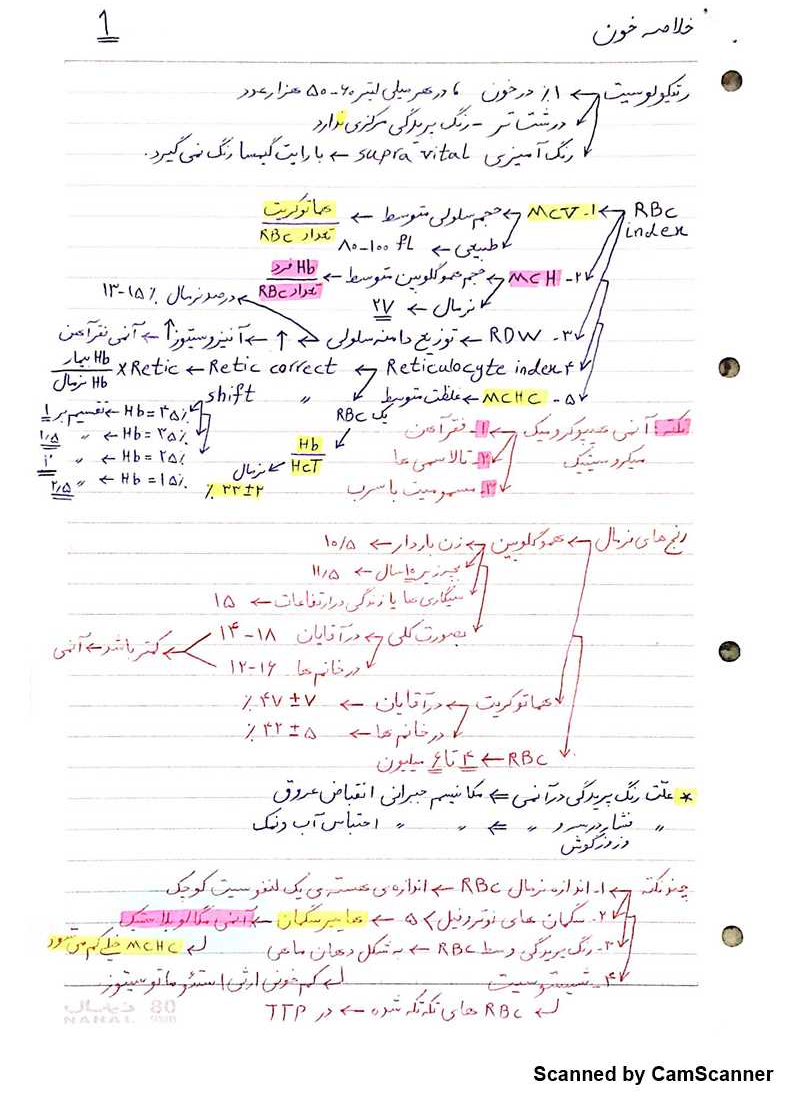 خلاصه خون
1
رتیکولوسیت ← ۱٪ در خون ، در هر میلی لیتر ۶۰-۵۰ هزار عدد
درشت تر - رنگ پریدگی مرکزی ندارد
رنگ آمیزی supra vital ← با رایت گیمسا رنگ نمی گیرد.
RBC index
۱- MCV ← حجم سلولی متوسط ← هماتوکریت / تعداد RBC
طبیعی ← ۸۰-۱۰۰ fL
۲- MCH ← حجم هموگلوبین متوسط ← Hb فرد / تعداد RBC
نرمال ← ۲۷
درصد نرمال ۱۳-۱۵٪
۳- RDW ← توزیع دامنه سلولی ← ↑ ← آنیزوسیتوز ↑ ← آنمی فقر آهن
۴ Reticulocyte index ← Retic correct ← Retic × Hb بیمار / Hb نرمال
shift "
۵- MCHC ← غلظت متوسط
یک RBC
Hb / HCT ← نرمال ۳۳±۲ ٪
Hb = ۴۵٪ ← تقسیم بر ۱
Hb = ۳۵٪ ← " ۱٫۵
Hb = ۲۵٪ ← " ۲
Hb = ۱۵٪ ← " ۲٫۵
نکته: آنمی هیپوکرومیک میکروسیتیک ← ۱- فقر آهن
۲- تالاسمی ها
۳- مسمومیت با سرب
رنج های نرمال ← هموگلوبین ← زن باردار ← ۱۰/۵
بچه زیر ۱۰ سال ← ۱۱/۵
سیگاری ها یا زندگی در ارتفاعات ← ۱۵
بصورت کلی ← در آقایان ۱۴-۱۸
در خانم ها ۱۲-۱۶
کمتر باشد ← آنمی
هماتوکریت ← در آقایان ← ۴۷±۷ ٪
در خانم ها ← ۴۲±۵ ٪
RBC ← ۴ تا ۶ میلیون
* علت رنگ پریدگی در آنمی ⇐ مکانیسم جبرانی انقباض عروق
" فشار در سر و " ⇐ " " احتباس آب و نمک
وزوز گوش
چند نکته ۱- اندازه نرمال RBC ← اندازه ی هسته ی یک لنفوسیت کوچک
۲- سگمان های نوتروفیل > ۵ ← هایپرسگمان ← آنمی مگالوبلاستیک
۳- رنگ پریدگی وسط RBC ← به شکل دهان ماهی
MCHC خیلی کم می شود
کم خونی ارثی استئوماتوسیتوز
۴- شیستوسیت
RBC های تکه تکه شده ← در TTP
80 خیال
NAHAL
Scanned by CamScanner